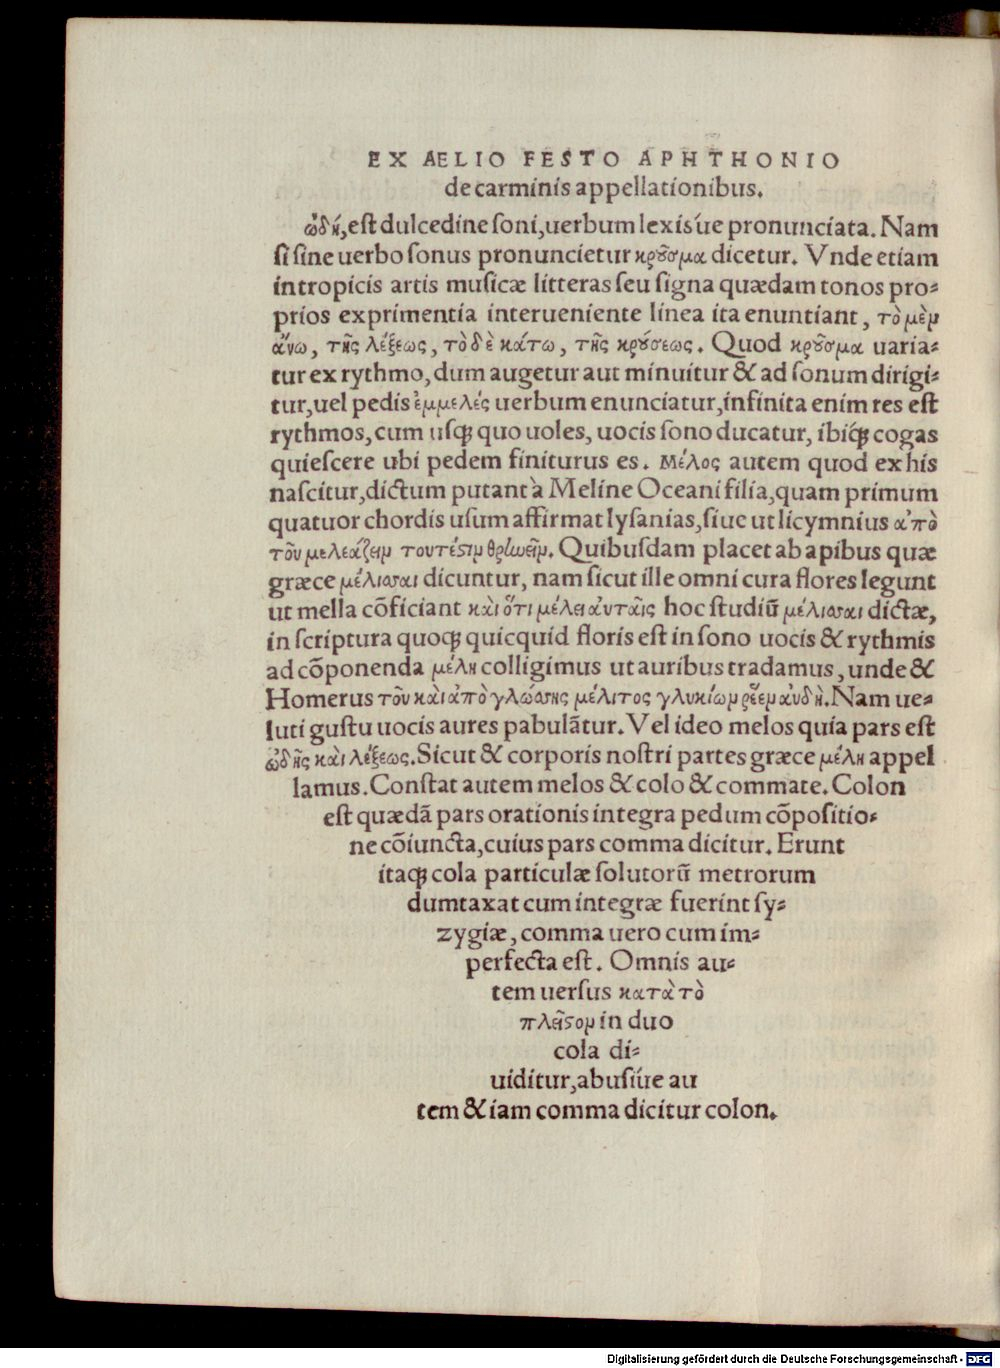 EX AELIO FESTO APHTHONIO
de carminis appellationibus.
ᾠδή, est dulcedine soni, uerbum lexisúe pronunciata. Nam
si sine uerbo sonus pronuncietur κροῦσμα dicetur. Vnde etiam
in tropicis artis musicæ litteras seu signa quædam tonos pro-
prios exprimentia interueniente linea ita enuntiant, τὸ μὲν
ἄνω, τῆς λέξεως, τὸ δὲ κάτω, τῆς κρούσεως. Quod κροῦσμα uaria-
tur ex rythmo, dum augetur aut minuitur & ad sonum dirigi-
tur, uel pedis ἐμμελές uerbum enunciatur, infinita enim res est
rythmos, cum usq; quo uoles, uocis sono ducatur, ibiq́; cogas
quiescere ubi pedem finiturus es. Μέλος autem quod ex his
nascitur, dictum putant à Meline Oceani filia, quam primum
quatuor chordis usum affirmat lysanias, siue ut licymnius ἀπὸ
τοῦ μελεάζειν τουτέστιν θρηνεῖν. Quibusdam placet ab apibus quæ
græce μέλισσαι dicuntur, nam sicut ille omni cura flores legunt
ut mella cõficiant καὶ ὅτι μέλει αὐταῖς hoc studiũ μέλισσαι dictæ,
in scriptura quoq; quicquid floris est in sono uocis & rythmis
ad cõponenda μέλη colligimus ut auribus tradamus, unde &
Homerus τοῦ καὶ ἀπὸ γλώσσης μέλιτος γλυκίων ῥέεν αὐδὴ. Nam ue-
luti gustu uocis aures pabulãtur. Vel ideo melos quia pars est
ᾠδῆς καὶ λέξεως. Sicut & corporis nostri partes græce μέλη appel
lamus. Constat autem melos & colo & commate. Colon
est quædã pars orationis integra pedum cõpositio-
ne cõiuncta, cuius pars comma dicitur. Erunt
itaq; cola particulæ solutorũ metrorum
dumtaxat cum integræ fuerint sy-
zygiæ, comma uero cum im-
perfecta est. Omnis au-
tem uersus κατὰ τὸ
πλεῖστον in duo
cola di-
uiditur, abusiúe au
tem & iam comma dicitur colon.
Digitalisierung gefördert durch die Deutsche Forschungsgemeinschaft - DFG